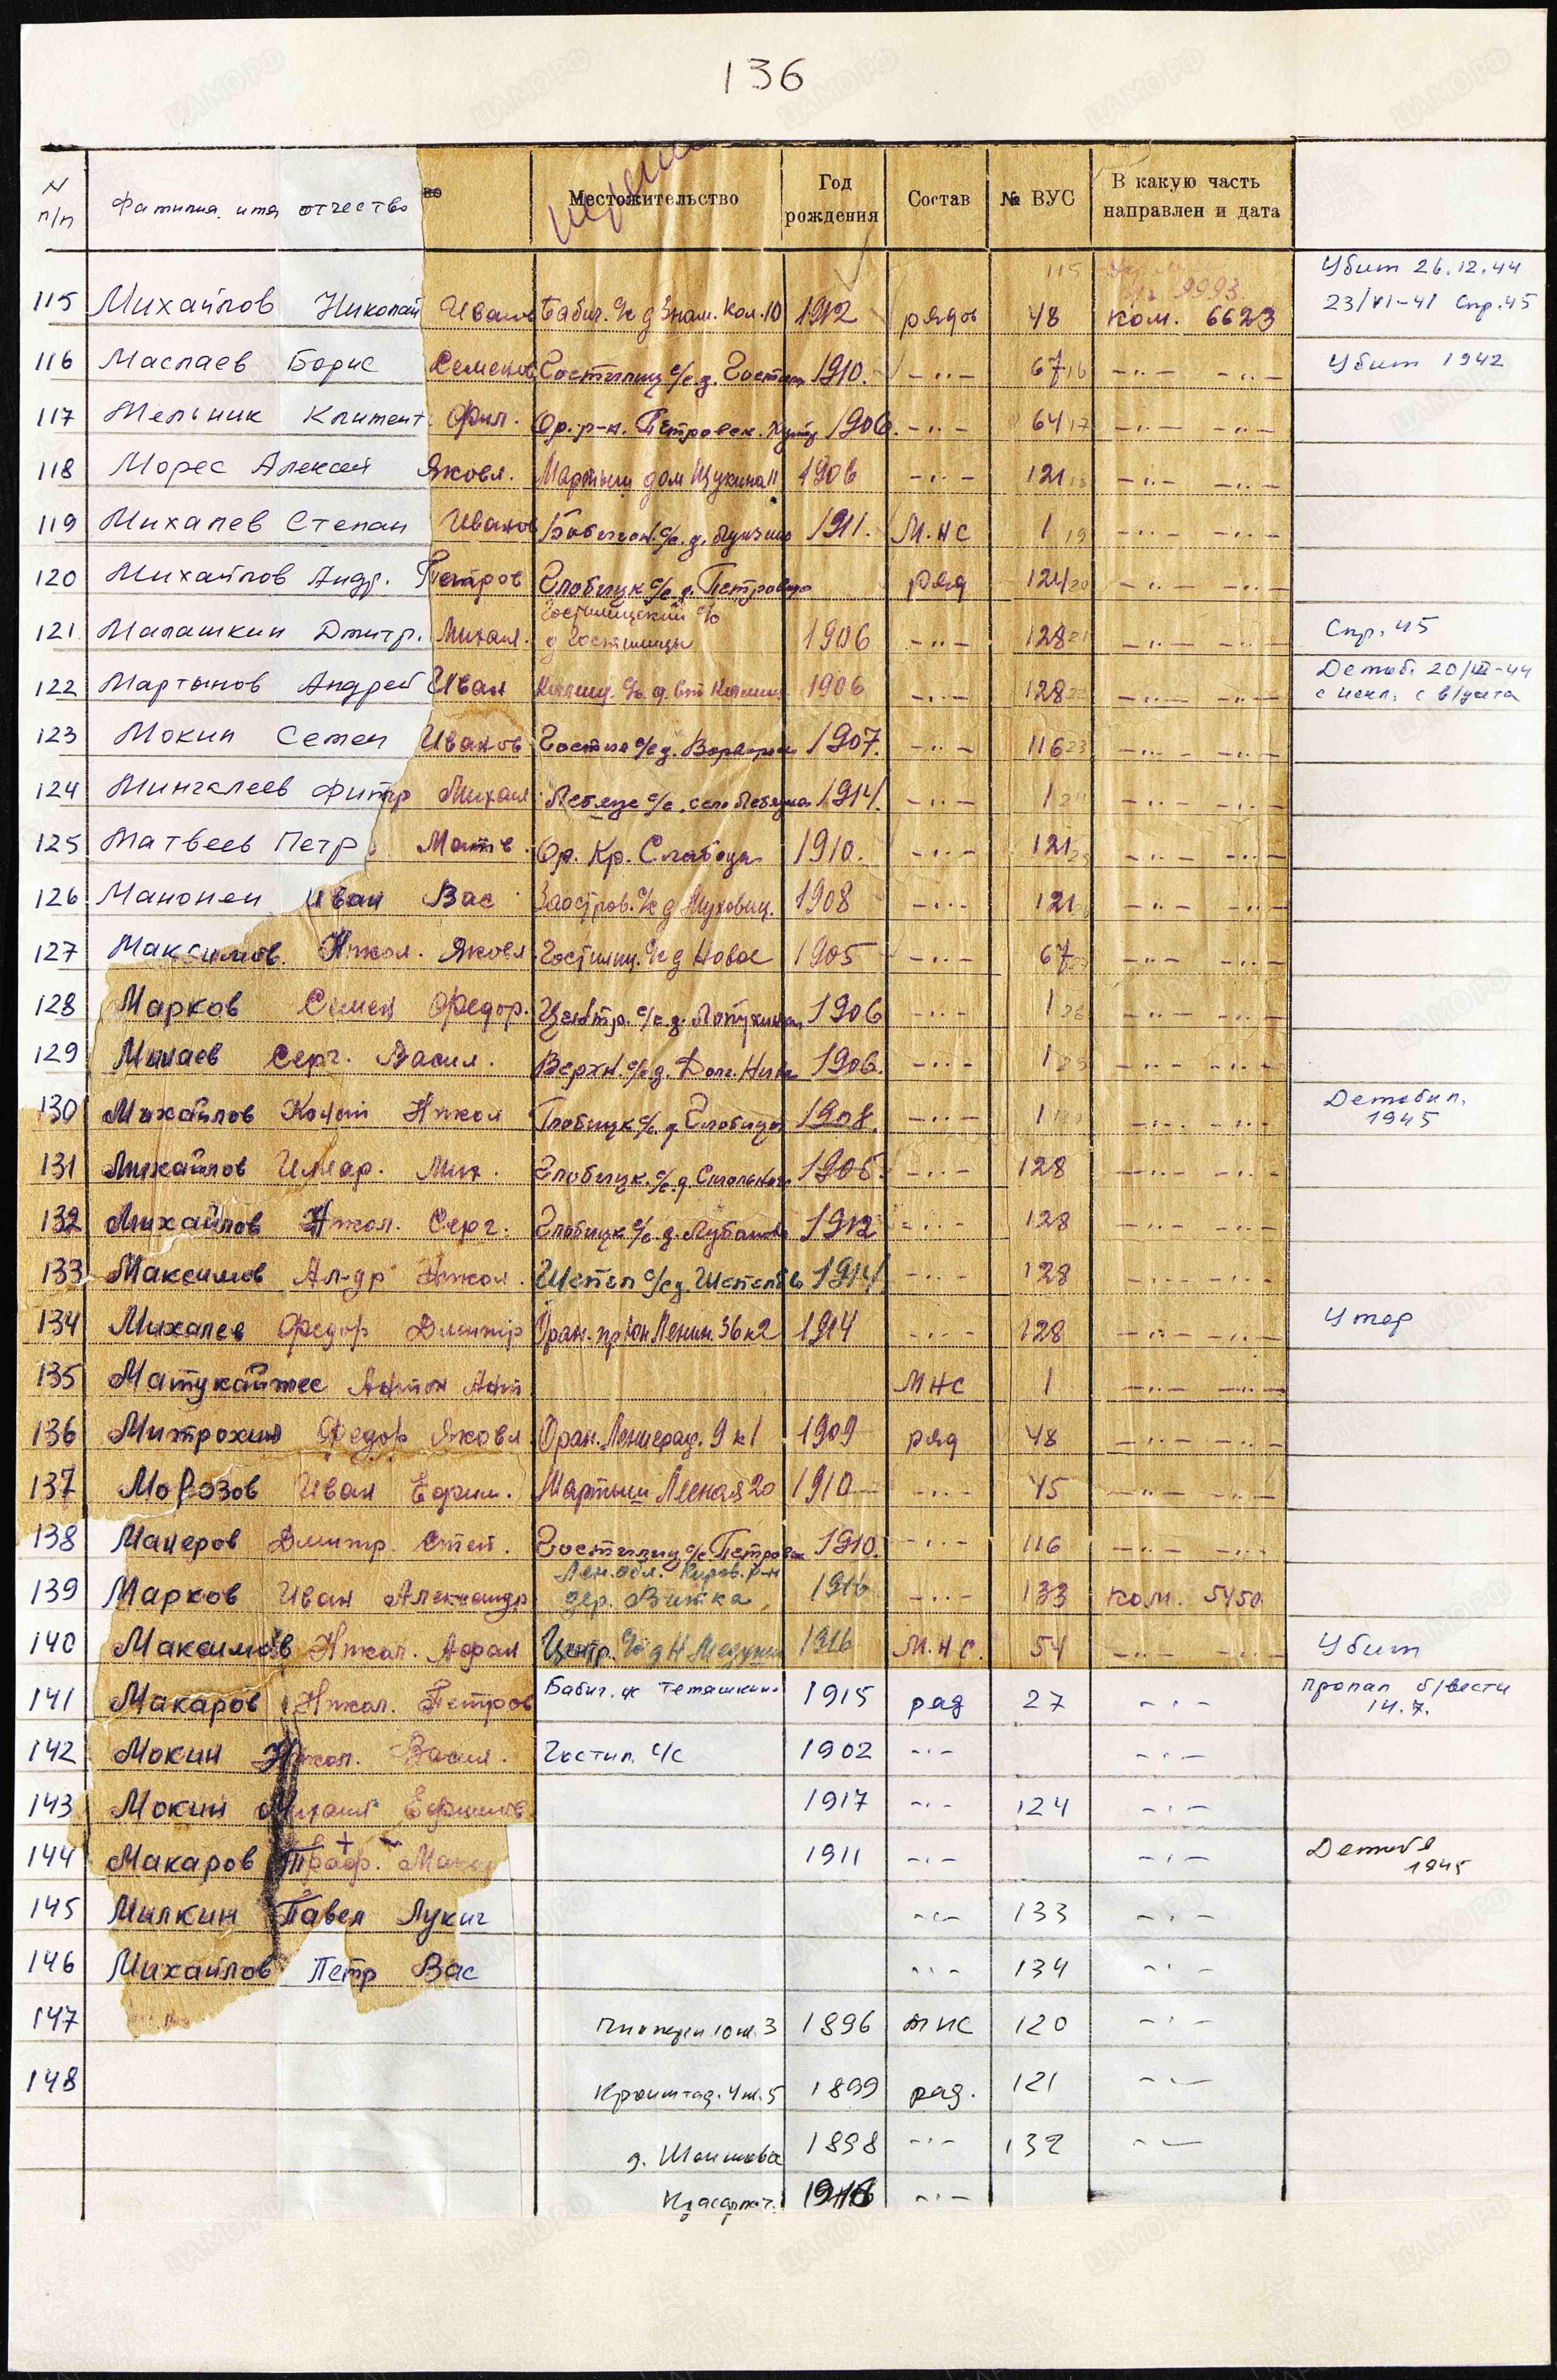 136
№ п/п Фамилия, имя отчество во Местожительство Год рождения Состав № ВУС В какую часть направлен и дата
115 Михайлов Николай Иванов Бабиг. с/с д Знам. Кол. 10 1912 рядов 48 ком. 6623 Убит 26.12.44 23/VI-41 Спр. 45
116 Маслаев Борис Семенов Гостилиц с/с д. Гостил 1910. -"- 67 -"- -"- Убит 1942
117 Мельник Климент. Фил. Ор. р-н. Петровск. 1906. -"- 64 -"- -"-
118 Морес Алексей Яковл. Мартыш дом Щукина 11 1906 -"- 121 -"- -"-
119 Михалев Степан Иванов Бабигон. с/с. д. Луизино 1911. М.НС 1 -"- -"-
120 Михайлов Андр. Петров Глобицк с/с д. Петровицы ряд 124 -"- -"-
121 Малашкин Дмитр. Михаил. Гостилицский с/с д Гостилицы 1906 -"- 128 -"- -"- Спр. 45
122 Мартынов Андрей Иван с/с. д. 1906 -"- 128 -"- -"- Демоб. 20/III-44 с искл. с в/учета
123 Мокин Семен Иванов Гостил с/с д. 1907. -"- 116 -"- -"-
124 Мингалеев Фитир Михаил Лебяже с/с, село Лебяжье 1914. -"- 1 -"- -"-
125 Матвеев Петр Матв. Ор. Кр. Слабода 1910. -"- 121 -"- -"-
126 Манонен Иван Вас Заостров. с/с д Муховиц. 1908 -"- 121 -"- -"-
127 Максимов. Никол. Яковл. Гостилиц. с/с д Новое 1905 -"- 67 -"- -"-
128 Марков Семен Федор. Центр. с/с. д. Лопухинка 1906 -"- 1 -"- -"-
129 Минаев Серг. Васил. Верхн. с/с д. Дол. Нива 1906. -"- 1 -"- -"-
130 Михайлов Никол Глобицк с/с. д. Глобицы 1908. -"- 1 -"- -"- Демобил. 1945
131 Михайлов Мих. Глобицк. с/с. д. 1905. -"- 128 -"- -"-
132 Михайлов Никол. Серг. Глобицк с/с. д. Лубаново 1912 -"- 128 -"- -"-
133 Максимов Ал-др Никол. Шепел с/с д. Шепелево 1914. -"- 128 -"- -"-
134 Михалев Федор Дмитр Оран. пр Юн Ленин. 36 к 2 1914 -"- 128 -"- -"- Умер
135 Матукайтес Антон Ант МНС 1 -"- -"-
136 Митрохин Федор Яковл Оран. Ленинград. 9 к 1 1909 ряд 48 -"- -"-
137 Морозов Иван Ефим. Мартыш Лесная 20 1910 -"- 45 -"- -"-
138 Манеров Дмитр. Степ. Гостилиц с/с. Петровск 1910. -"- 116 -"- -"-
139 Марков Иван Александр Лен. обл. Киров. р-н дер. Витка 1916 -"- 133 ком. 5450
140 Максимов Никол. Афан Центр. с/с д Н Медуши 1916 М.НС. 54 -"- -"- Убит
141 Макаров Никол. Петров Бабиг. с/с Темашкин. 1915 ряд 27 -"- Пропал б/вести 14.7.
142 Мокин Никол. Васил. Гостил. с/с 1902 -"- -"-
143 Мокин Михаил Ефимов 1917 -"- 124 -"-
144 Макаров Троф. Макар 1911 -"- -"- Демоб 1945
145 Милкин Павел Лукич -"- 133 -"-
146 Михайлов Петр Вас -"- 134 -"-
147 10 кв. 3 1896 мнс 120 -"-
148 Кронштад. 4 кв. 5 1899 ряд. 121 -"-
д. 1898 -"- 132 -"-
-"-